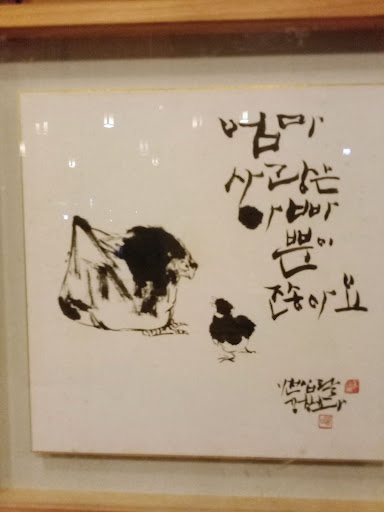 엄마
사랑은
아빠
뿐이
잖아요